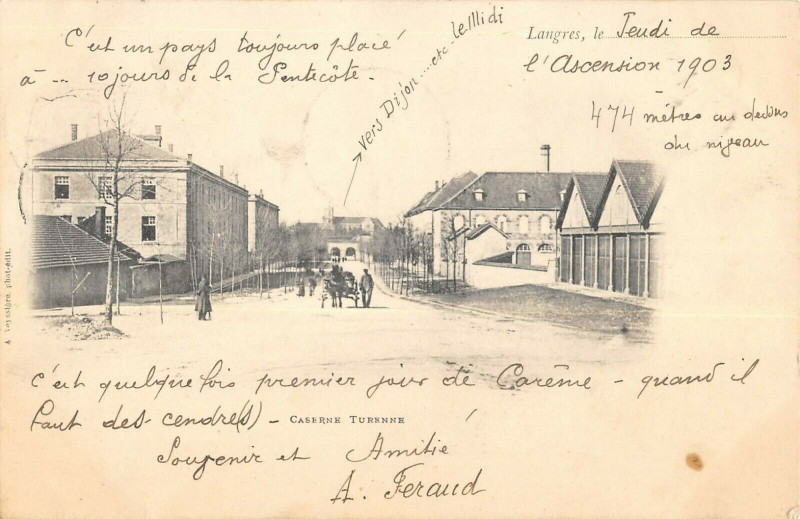 Langres, le Jeudi de
l'Ascension 1903
474 mètres au dessus
du niveau
C'est un pays toujours placé
à ... 10 jours de la Pentecôte.
vers Dijon ... etc. le Midi
A. Veyssière, phot-édit.
C'est quelque fois premier jour de Carême - quand il
faut des-cendre(s) -
CASERNE TURENNE
Souvenir et Amitié
A. Feraud